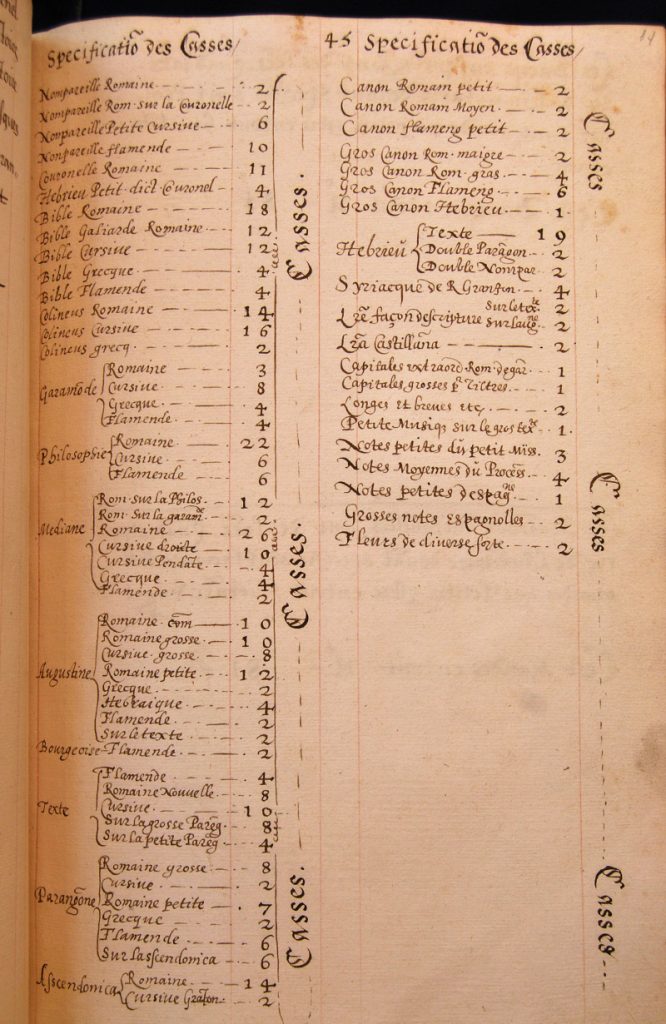 Specificatiō des Casses/
Nompareille Romaine 2
Nompareille Rom. sur la Couronelle 2
Nonpareille Petite Cursive 6
Nonpareille flamende 10
Couronelle Romaine 11
Hebrieu Petit dict Couronel 4
Bible Romaine 18
Bible Galiarde Romaine 12
Bible Cursive 12
Bible Grecque 4
Bible Flamende 4
Colineus Romaine 14
Colineus Cursive 16
Colineus grecq. 2
Garamōde
Romaine 3
Cursive 8
Grecque 4
Flamende 4
Philosophie
Romaine 22
Cursive 6
Flamende 6
Mediane
Rom. sur la Philos. 12
Rom. sur la garamōde 2
Romaine 26
Cursive droicte 10
Cursive Pendāte 4
Grecque 4
Flamende 2
Augustine
Romaine cōm 10
Romaine grosse 10
Cursive grosse 8
Romaine petite 12
Grecque 2
Hebraique 4
Flamende 2
Sur le texte 2
Bourgeoise Flamende 2
Texte
Flamende 4
Romaine Nouvelle 8
Cursive 10
Sur la grosse Parāg 8
Sur la petite Parāg 4
Parangōne
Romaine grosse 8
Cursive 2
Romaine petite 7
Grecque 2
Flamende 6
Sur la Ascendonica 6
Asscendonica
Romaine 14
Cursive Grāion 2
Casses.
Casses.
Casses.
45 Specificatiō des Casses/
Canon Romain petit 2
Canon Romain Moyen 2
Canon flameng petit 2
Gros Canon Rom. maigre 2
Gros Canon Rom. gras 4
Gros Canon Flameng 6
Gros Canon Hebrieu 1
Hebrieu
Texte 19
Double Parāgon 2
Double Nompar 2
Syriacque de R Granion 4
Lrē façon descripture sur le texte 2
sur laug ne 2
Lrā Castillana 2
Capitales extraord Rom. de gar. 1
Capitales grosses pr Tiltres 1
Longes et breues etc. 2
Petite Musiq sur le gros tex 1
Notes petites du petit Miss. 3
Notes Moyennes du Process. 4
Notes petites despag ne 1
Grosses notes Espagnolles 2
Fleurs de diverse sorte 2
Casses
Casses
Casses